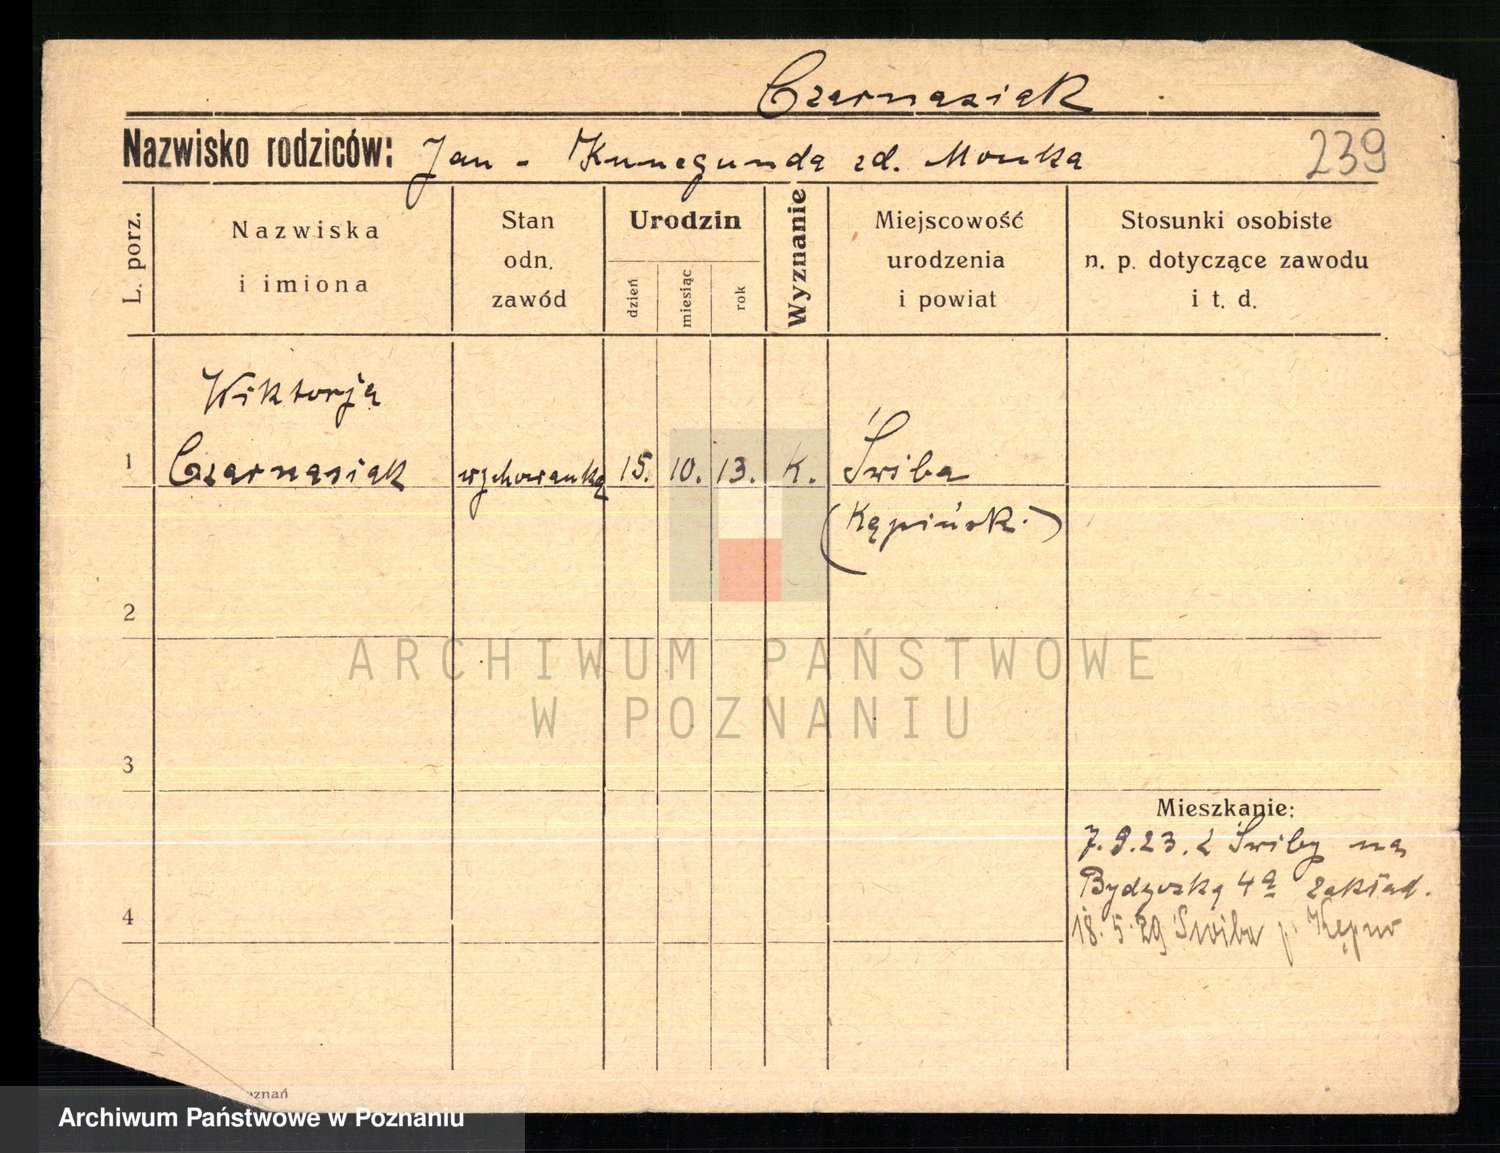 Czarnasiak
Nazwisko rodziców: Jan - Kunegunda zd. Monka
239
L. porz.
Nazwiska
i imiona
Stan
odn.
zawód
Urodzin
dzień
miesiąc
rok
Wyznanie
Miejscowość
urodzenia
i powiat
Stosunki osobiste
n. p. dotyczące zawodu
i t. d.
Wiktorja
1 Czarnasiak wychowanka 15. 10. 13. K. Świba
(Kępińsk.)
2
3
Mieszkanie:
7.9.23. z Świby na
Bydgoską 4a Zakład.
4
18.5.29 Świba p. Kępno
ARCHIWUM PAŃSTWOWE
W POZNANIU
oznań
Archiwum Państwowe w Poznaniu